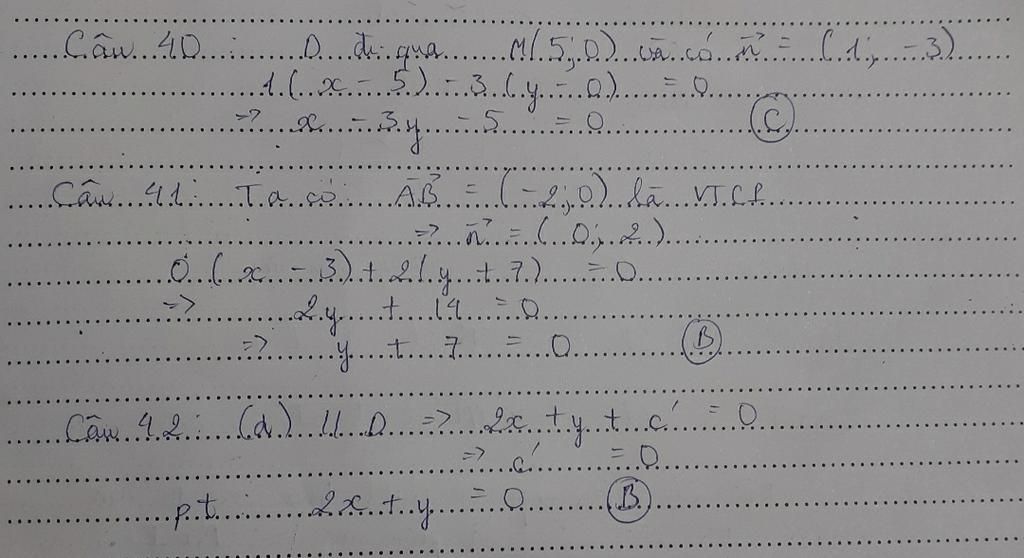 Câu 40: D đi qua M(5;0) và có n⃗ = (1; -3)
1(x - 5) - 3(y - 0) = 0
=> x - 3y - 5 = 0 C
Câu 41: Ta có: AB⃗ = (-2;0) là VTCP
=> n⃗ = (0; 2)
0(x - 3) + 2(y + 7) = 0
=> 2y + 14 = 0
=> y + 7 = 0 B
Câu 42: (d) // D => 2x + y + c' = 0
=> c' = 0
pt: 2x + y = 0 B